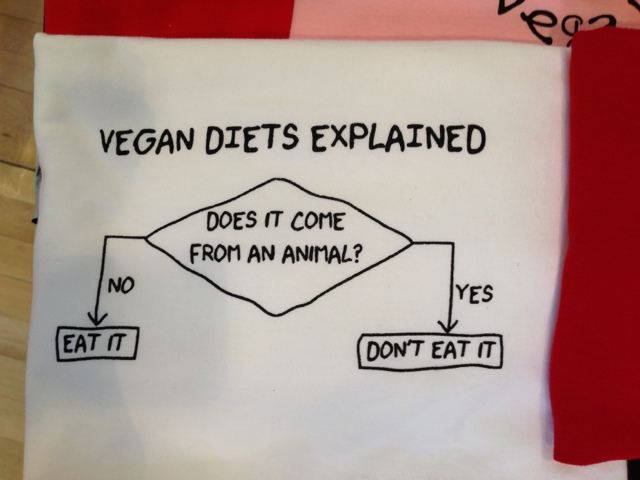 Vega
VEGAN DIETS EXPLAINED
DOES IT COME
FROM AN ANIMAL?
NO
YES
EAT IT
DON'T EAT IT